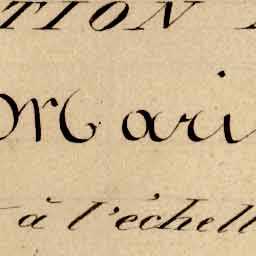 TION
Mari
à l'échell